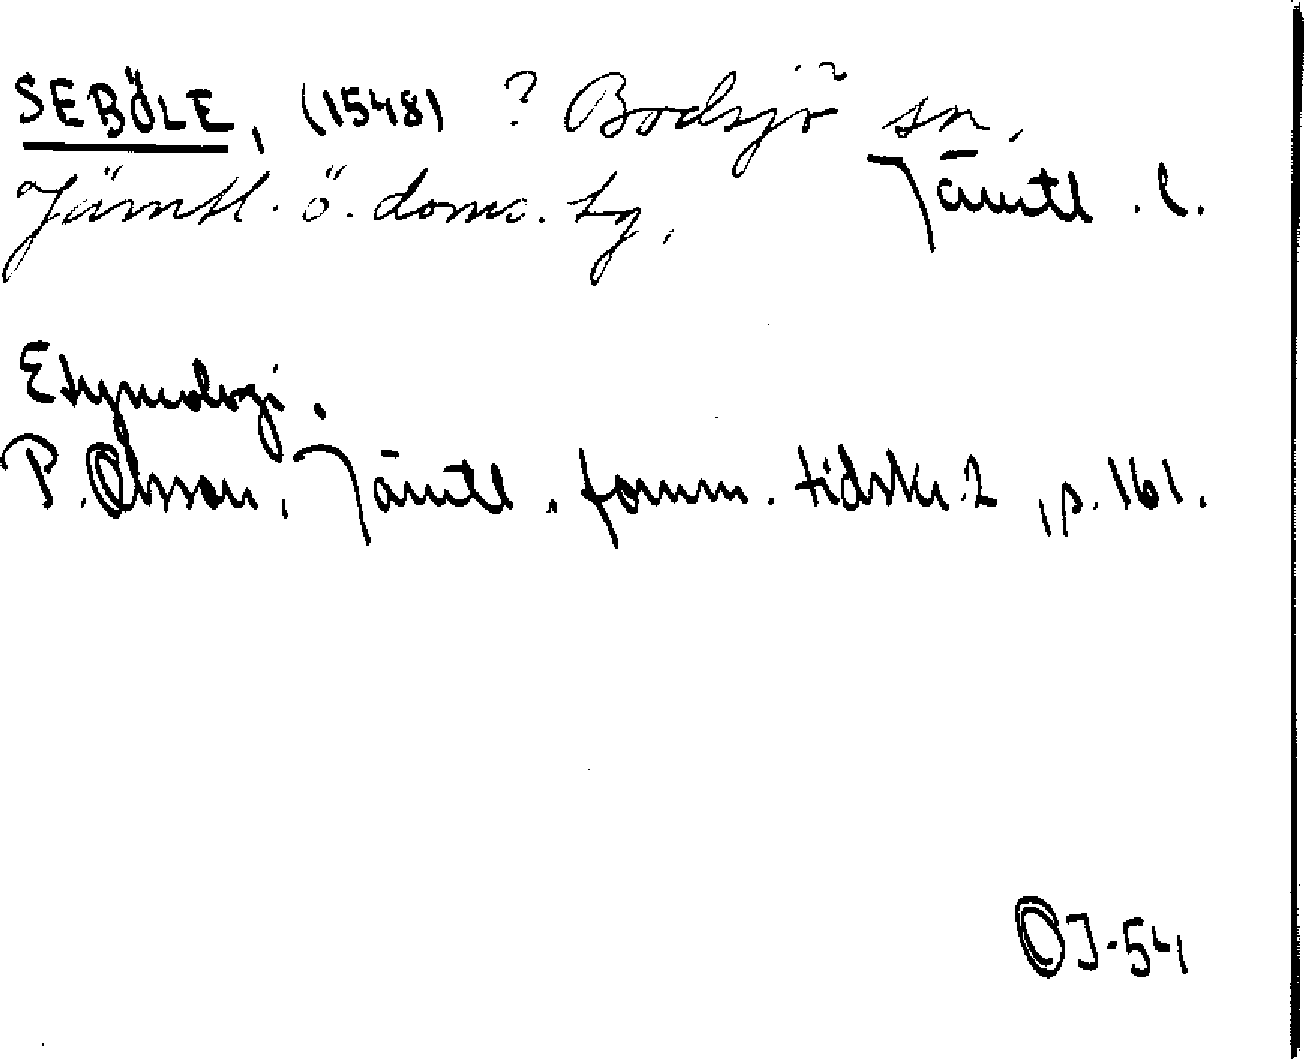 SEBÖLE, (1548) ? Bodsjö sn,
Jämtl. ö. doms. tg,
Jämtl. l.
Etymologi.
P. Olsson, Jämtl. fornm. tidskr. 2, p. 161.
OJ-54